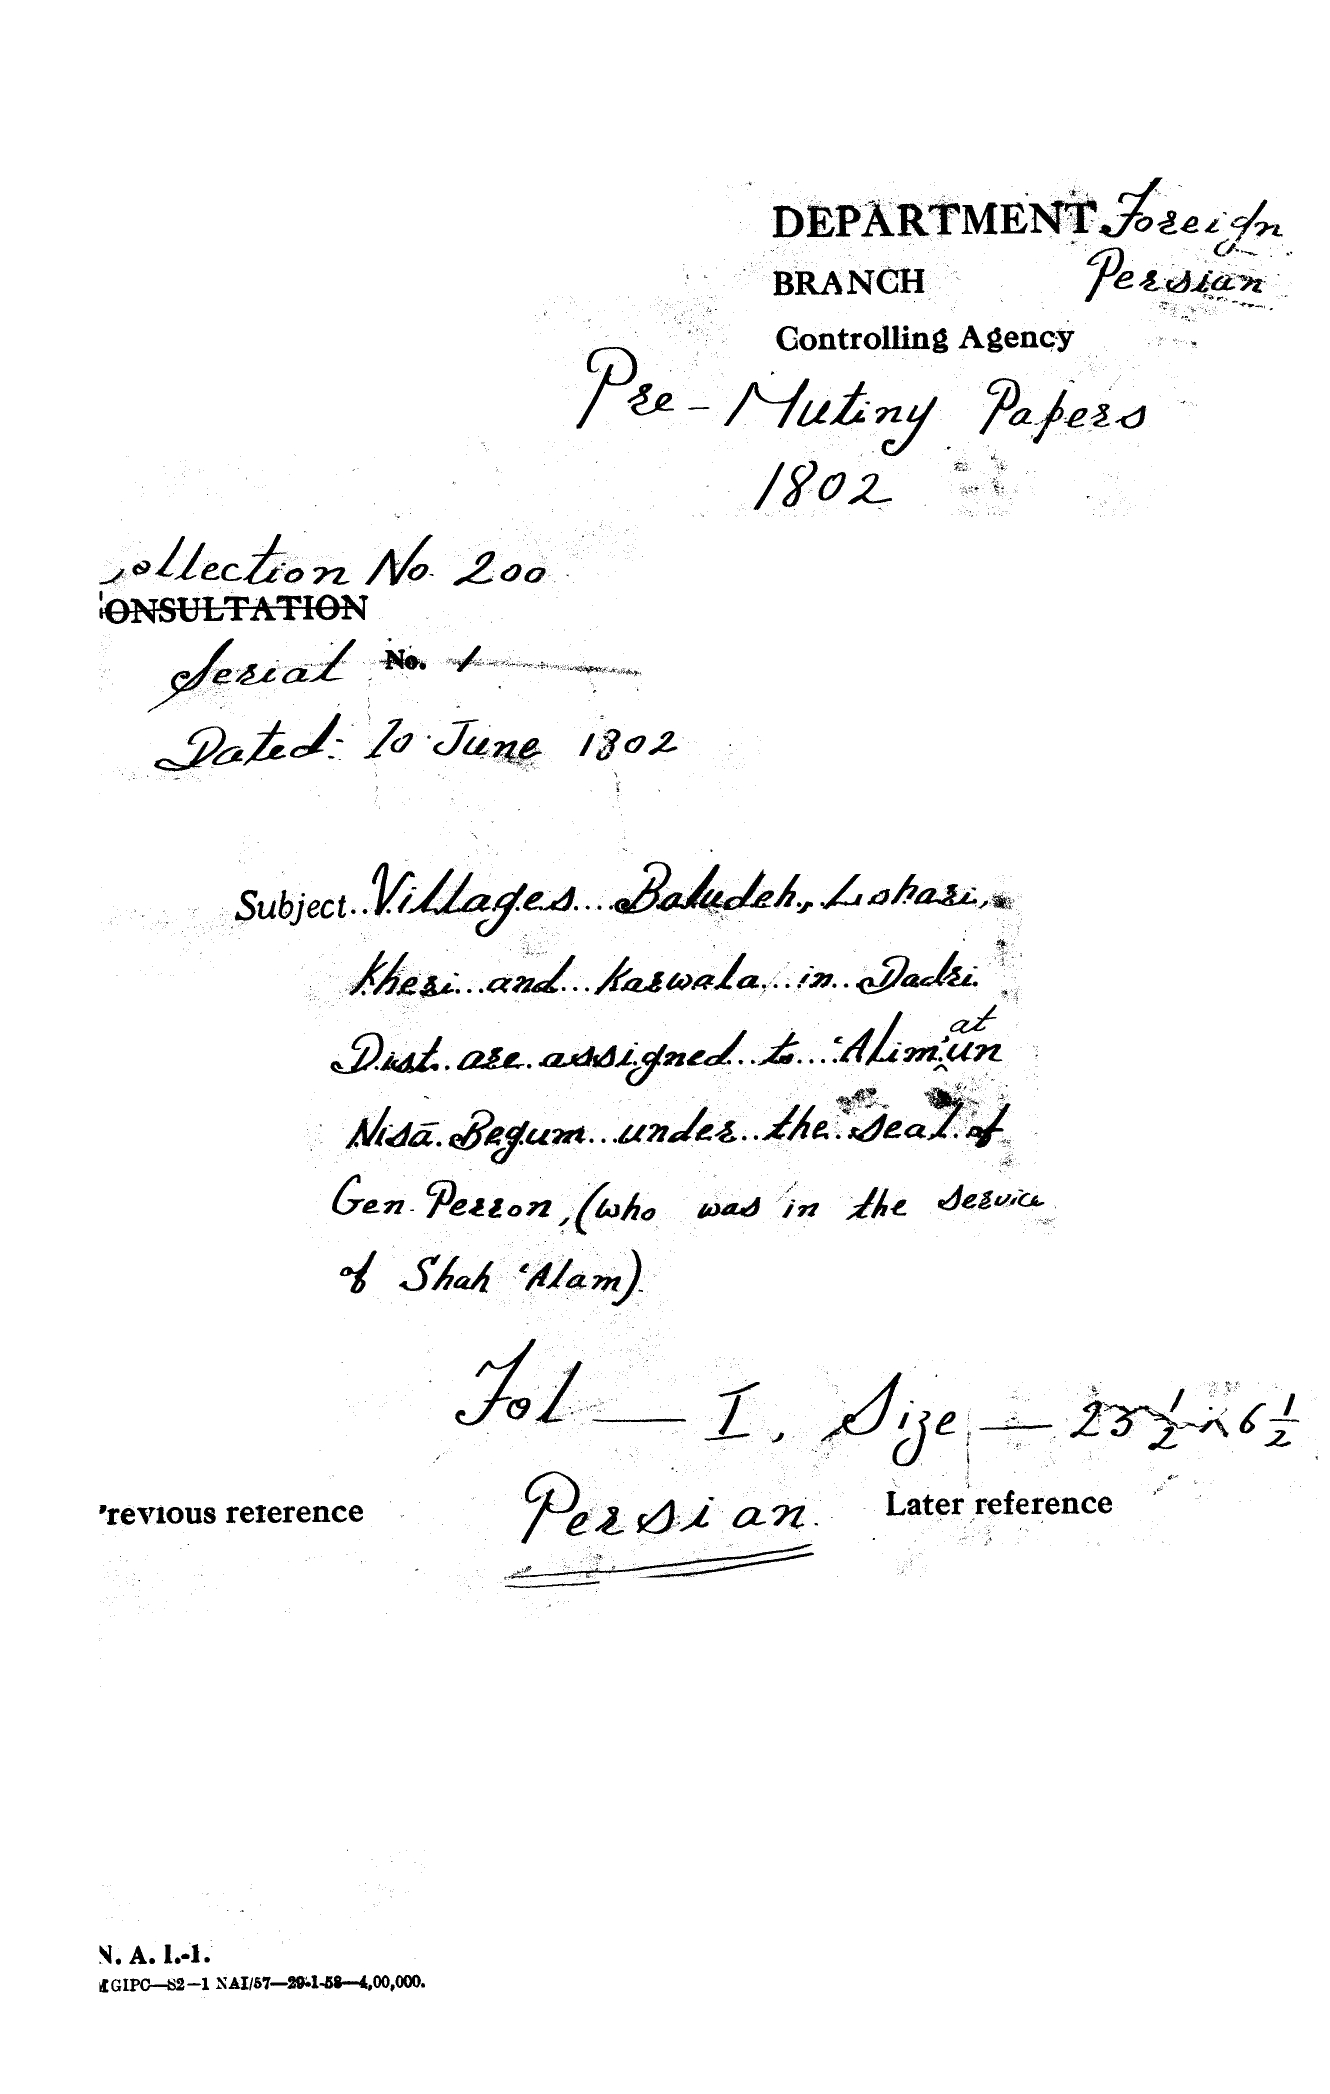 DEPARTMENT Foreign
BRANCH Persian
Controlling Agency
Pre-Mutiny Papers
1802
ollection No. 200
ONSULTATION
Serial No. 1
Dated:- 10 June 1802
Subject..Villages....Baludeh,.Lohari,
Kheri...and...Karwala...in..Dadri
Dist. are assigned..to....'Alim'at un
Nisā. Begum...under..the..seal.of
Gen. Perron, (who was in the service
of Shah 'Alam).
Fol — I, Size — 23 1/2 x 6 1/2
revious reference Persian. Later reference
N. A. I.-1.
GIPC—S2—1 NAI/57—29-1-58—4,00,000.